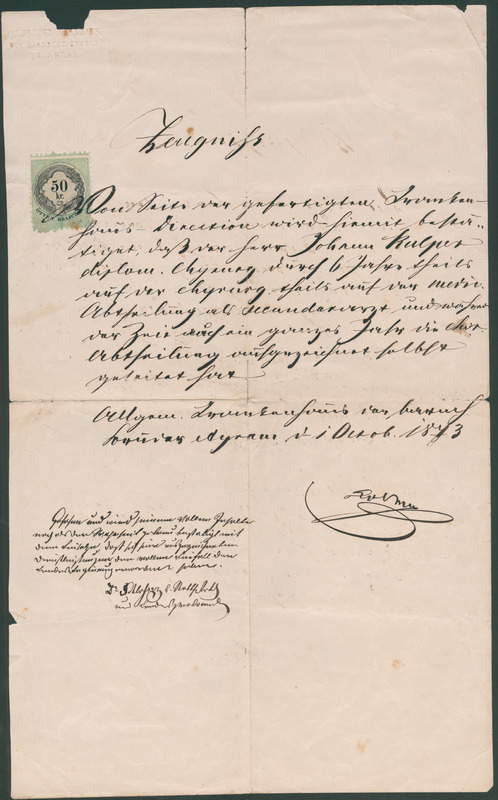 Zeugniss
50
kr.
Von Seite der gefertigten Kranken-
haus Direction wird hiemit bestä-
tiget, daß der Herr Johann Kulper
diplom. Chyrurg durch 6 Jahre theils
auf der chyrurg. theils auf der medic.
Abtheilung als Secundararzt und während
der Zeit auch ein ganzes Jahr die
Abtheilung ausgezeichnet selbst
geleitet hat
Allgem. Krankenhaus der barmh
brüder Agram, d 1 Octob. 1873
Gesehen und wird seinem vollem Inhalte
nach als der Wahrheit getreu bestätigt mit
dem Beisatze, daß sich seine ausgezeichneten
Dienstleistungen den vollen Beifall der
Landesregierung erworben haben.
Dr